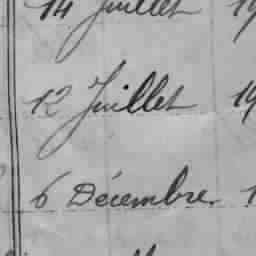 14 Juillet 19
12 Juillet 19
6 Décembre. 1